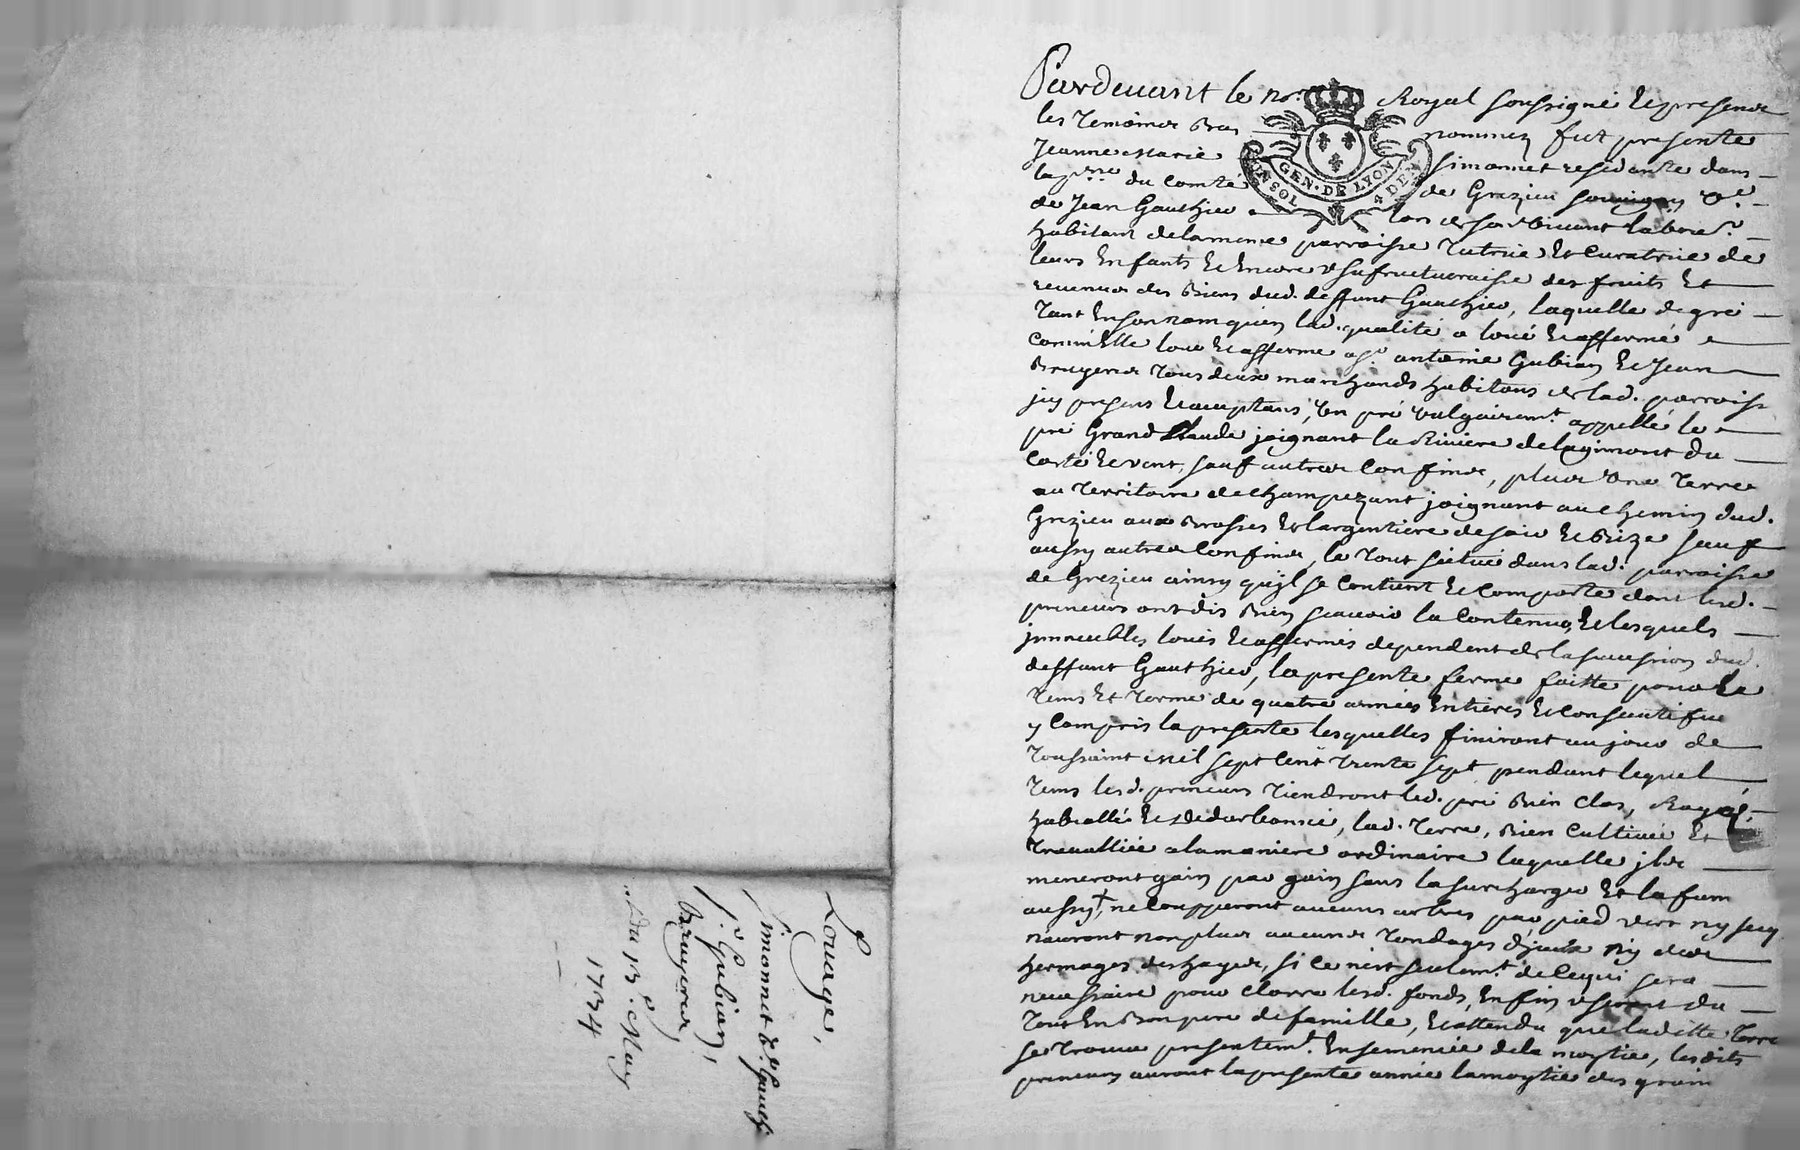 Louage,
Simonnet Ve Gauth.
Sr. Gubian,
Bruyeres,
Du 13e May
1734
Pardevant le nore Royal soussigné et presence
les temoins bas nommez fut presente
Jeanne Marie Simonnet residante dans
la pnne du Comte de Grezieu Ve
de Jean Gauthier lors de son vivant labour.
habitant de la meme parroisse tutrice et curatrice de
leurs enfants et encore usufructuaraisse des fruits et
revenus des biens dud. deffunt Gauthier, laquelle de gré
tant en son nom qu'en lad. qualité a loué et affermé
comm'elle loue et afferme a Sr antoine Gubian et Jean
Bruyeres tous deux marchands habitans de lad. parroisse
icy presens et acceptans, un pré vulgairemt. appellé le
pré Grand Claude joignant la Riviere de lagimont du
costé de vent, sauf autres confins, plus une terre
au territoire de champezant joignant au chemin dud.
Grezieu aux Brosses et largentiere de soir et Bize sauf
aussy autres confins, le tout scitué dans lad. parroisse
de Grezieu ainsy qu'jl se contient et comporte dont lesd.
preneurs ont dis bien scavoir la contenue, et lesquels
jmmeubles loués et affermés dependent de la succession dud.
deffunt Gauthier, la presente ferme faitte pour le
tems et terme de quatre années entieres et consecutifve
y compris la presente lesquelles finiront au jour de
toussaint mil sept cent trente sept pendant lequel
tems lesd. preneurs tiendront led. pré bien clos, Rayé,
habiallé et , lad. terre, bien cultivée et
travalliée a la maniere ordinaire laquelle jls
meneront gain par gain sans la surcharger et la fum
aussy + ne coupperont aucuns arbres par pied vert ny secq
n'auront non plus aucunes tondages d'jceux ny des
hermages des hayes, si ce n'est seulemt. de ce qui sera
necessaire pour clorre lesd. fonds, enfin useront du
tout en bon pere de famille, et attendu que ladite terre
se trouve presentemt. ensemencée de la moytié, lesdits
preneurs auront la presente année la moytié des grain
GEN. DE LYON
4 DEN